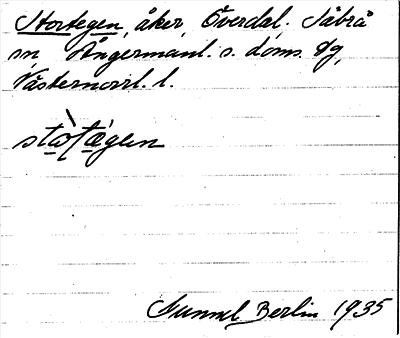 Stortegen, åker, Överdal. Säbrå
sn, Ångermanl. s. doms. sg,
Västernorrl. l.
Gunnel Berlin 1935